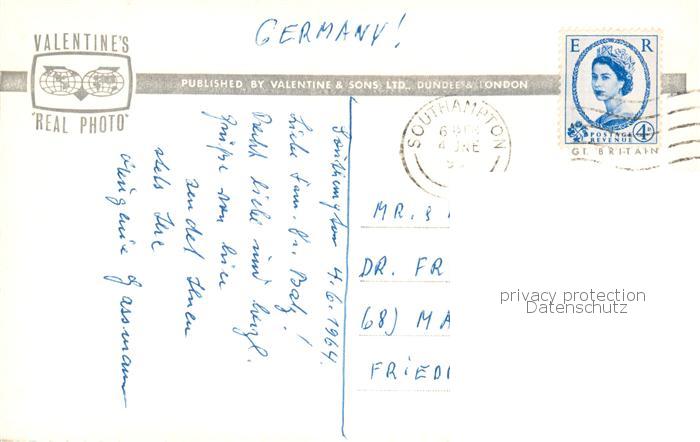 GERMANY!
VALENTINE'S
"REAL PHOTO"
PUBLISHED BY VALENTINE & SONS, LTD., DUNDEE & LONDON
E R
POSTAGE
REVENUE 4D
GT. BRITAIN
SOUTHAMPTON
4 JNE
Southampton 4.6.1964.
Liebe Fam. Dr. Batz!
Recht liebe und herzl.
Grüße von hier
sendet Ihnen
stets Ihre
Gassmann
MR. &
DR. FR
(68) MA
FRIEDI
privacy protection
Datenschutz